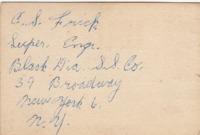 C. S. Frick
Super. Engr.
Black Dia. S.S. Co.
39 Broadway
New York 6.
N.Y.